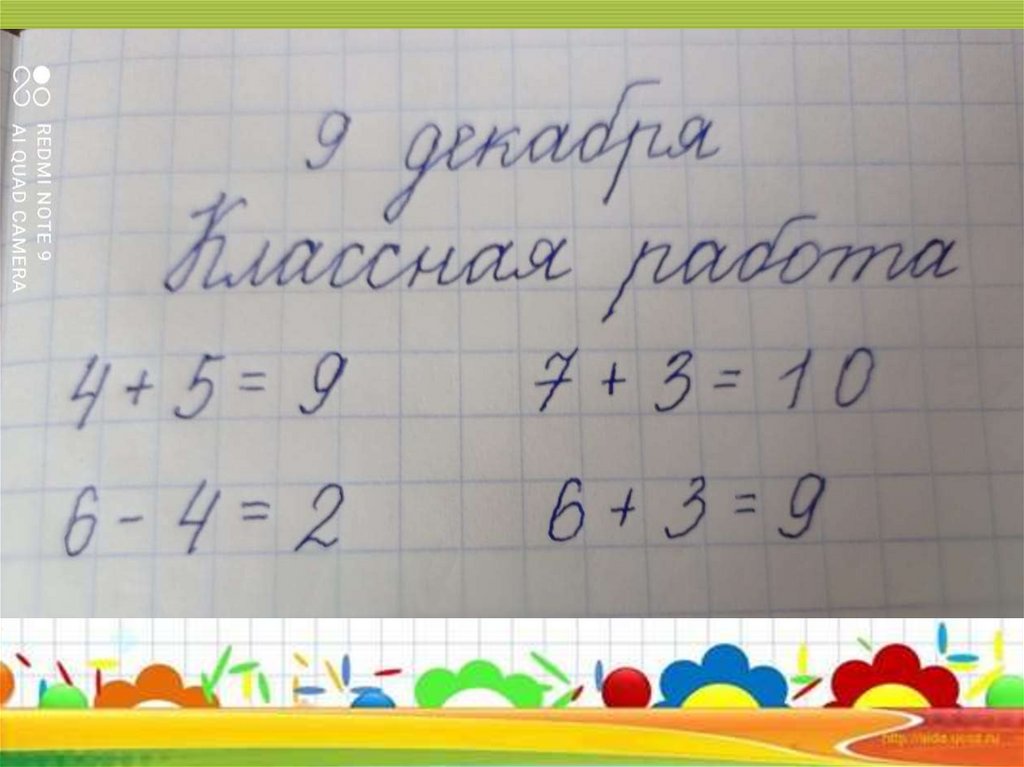 9 декабря
Классная работа
4 + 5 = 9 7 + 3 = 10
6 - 4 = 2 6 + 3 = 9
REDMI NOTE 9
AI QUAD CAMERA